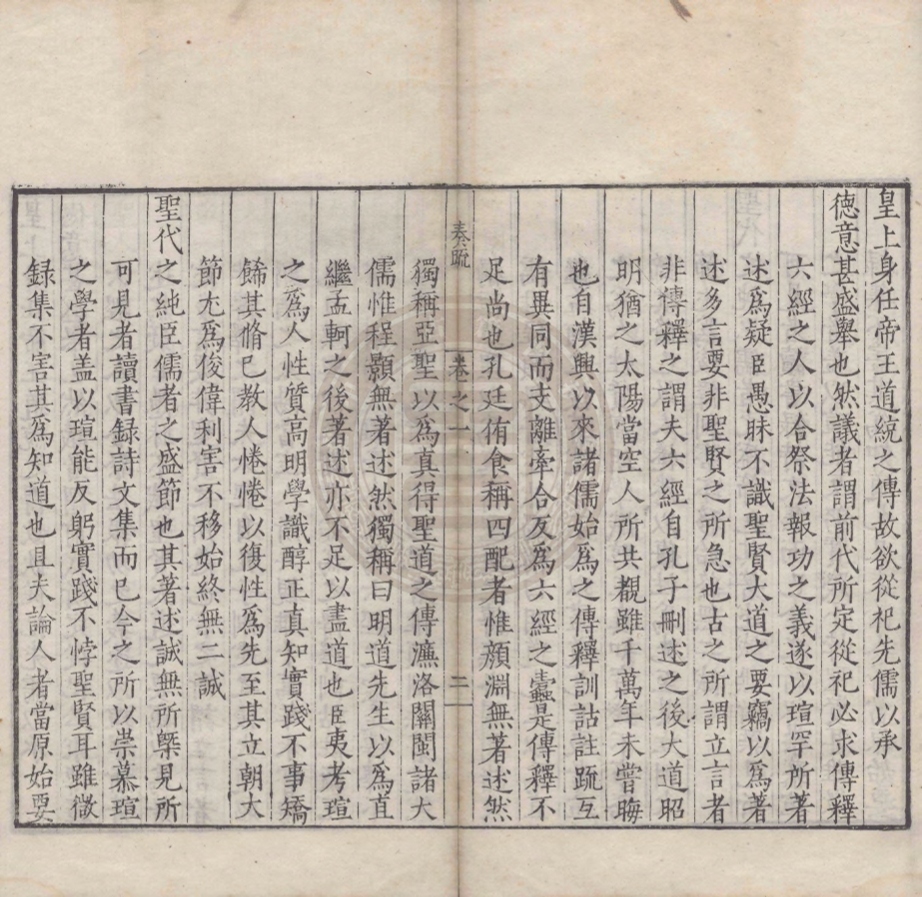 皇上身任帝王道統之傳故欲從祀先儒以承
德意甚盛舉也然議者謂前代所定從祀必求傳釋
六經之人以合祭法報功之義遂以瑄罕所著
述爲疑臣愚昧不識聖賢大道之要竊以爲著
述多言要非聖賢之所急也古之所謂立言者
非傳釋之謂夫六經自孔子刪述之後大道昭
明猶之太陽當空人所共覩雖千萬年未嘗晦
也自漢興以來諸儒始爲之傳釋訓詁註䟽互
有異同而支離牽合反爲六經之蠧是傳釋不
足尚也孔廷侑食稱四配者惟顏淵無著述然
奏䟽 卷之一 二
獨稱亞聖以爲真得聖道之傳濂洛關閩諸大
儒惟程顥無著述然獨稱曰明道先生以爲直
繼孟軻之後著述亦不足以盡道也臣夷考瑄
之爲人性質高明學識醇正真知實踐不事矯
餙其脩巳教人惓惓以復性爲先至其立朝大
節尤爲俊偉利害不移始終無二誠
聖代之純臣儒者之盛節也其著述誠無所槩見所
可見者讀書録詩文集而巳今之所以崇慕瑄
之學者盖以瑄能反躬實踐不悖聖賢耳雖微
録集不害其爲知道也且夫論人者當原始要